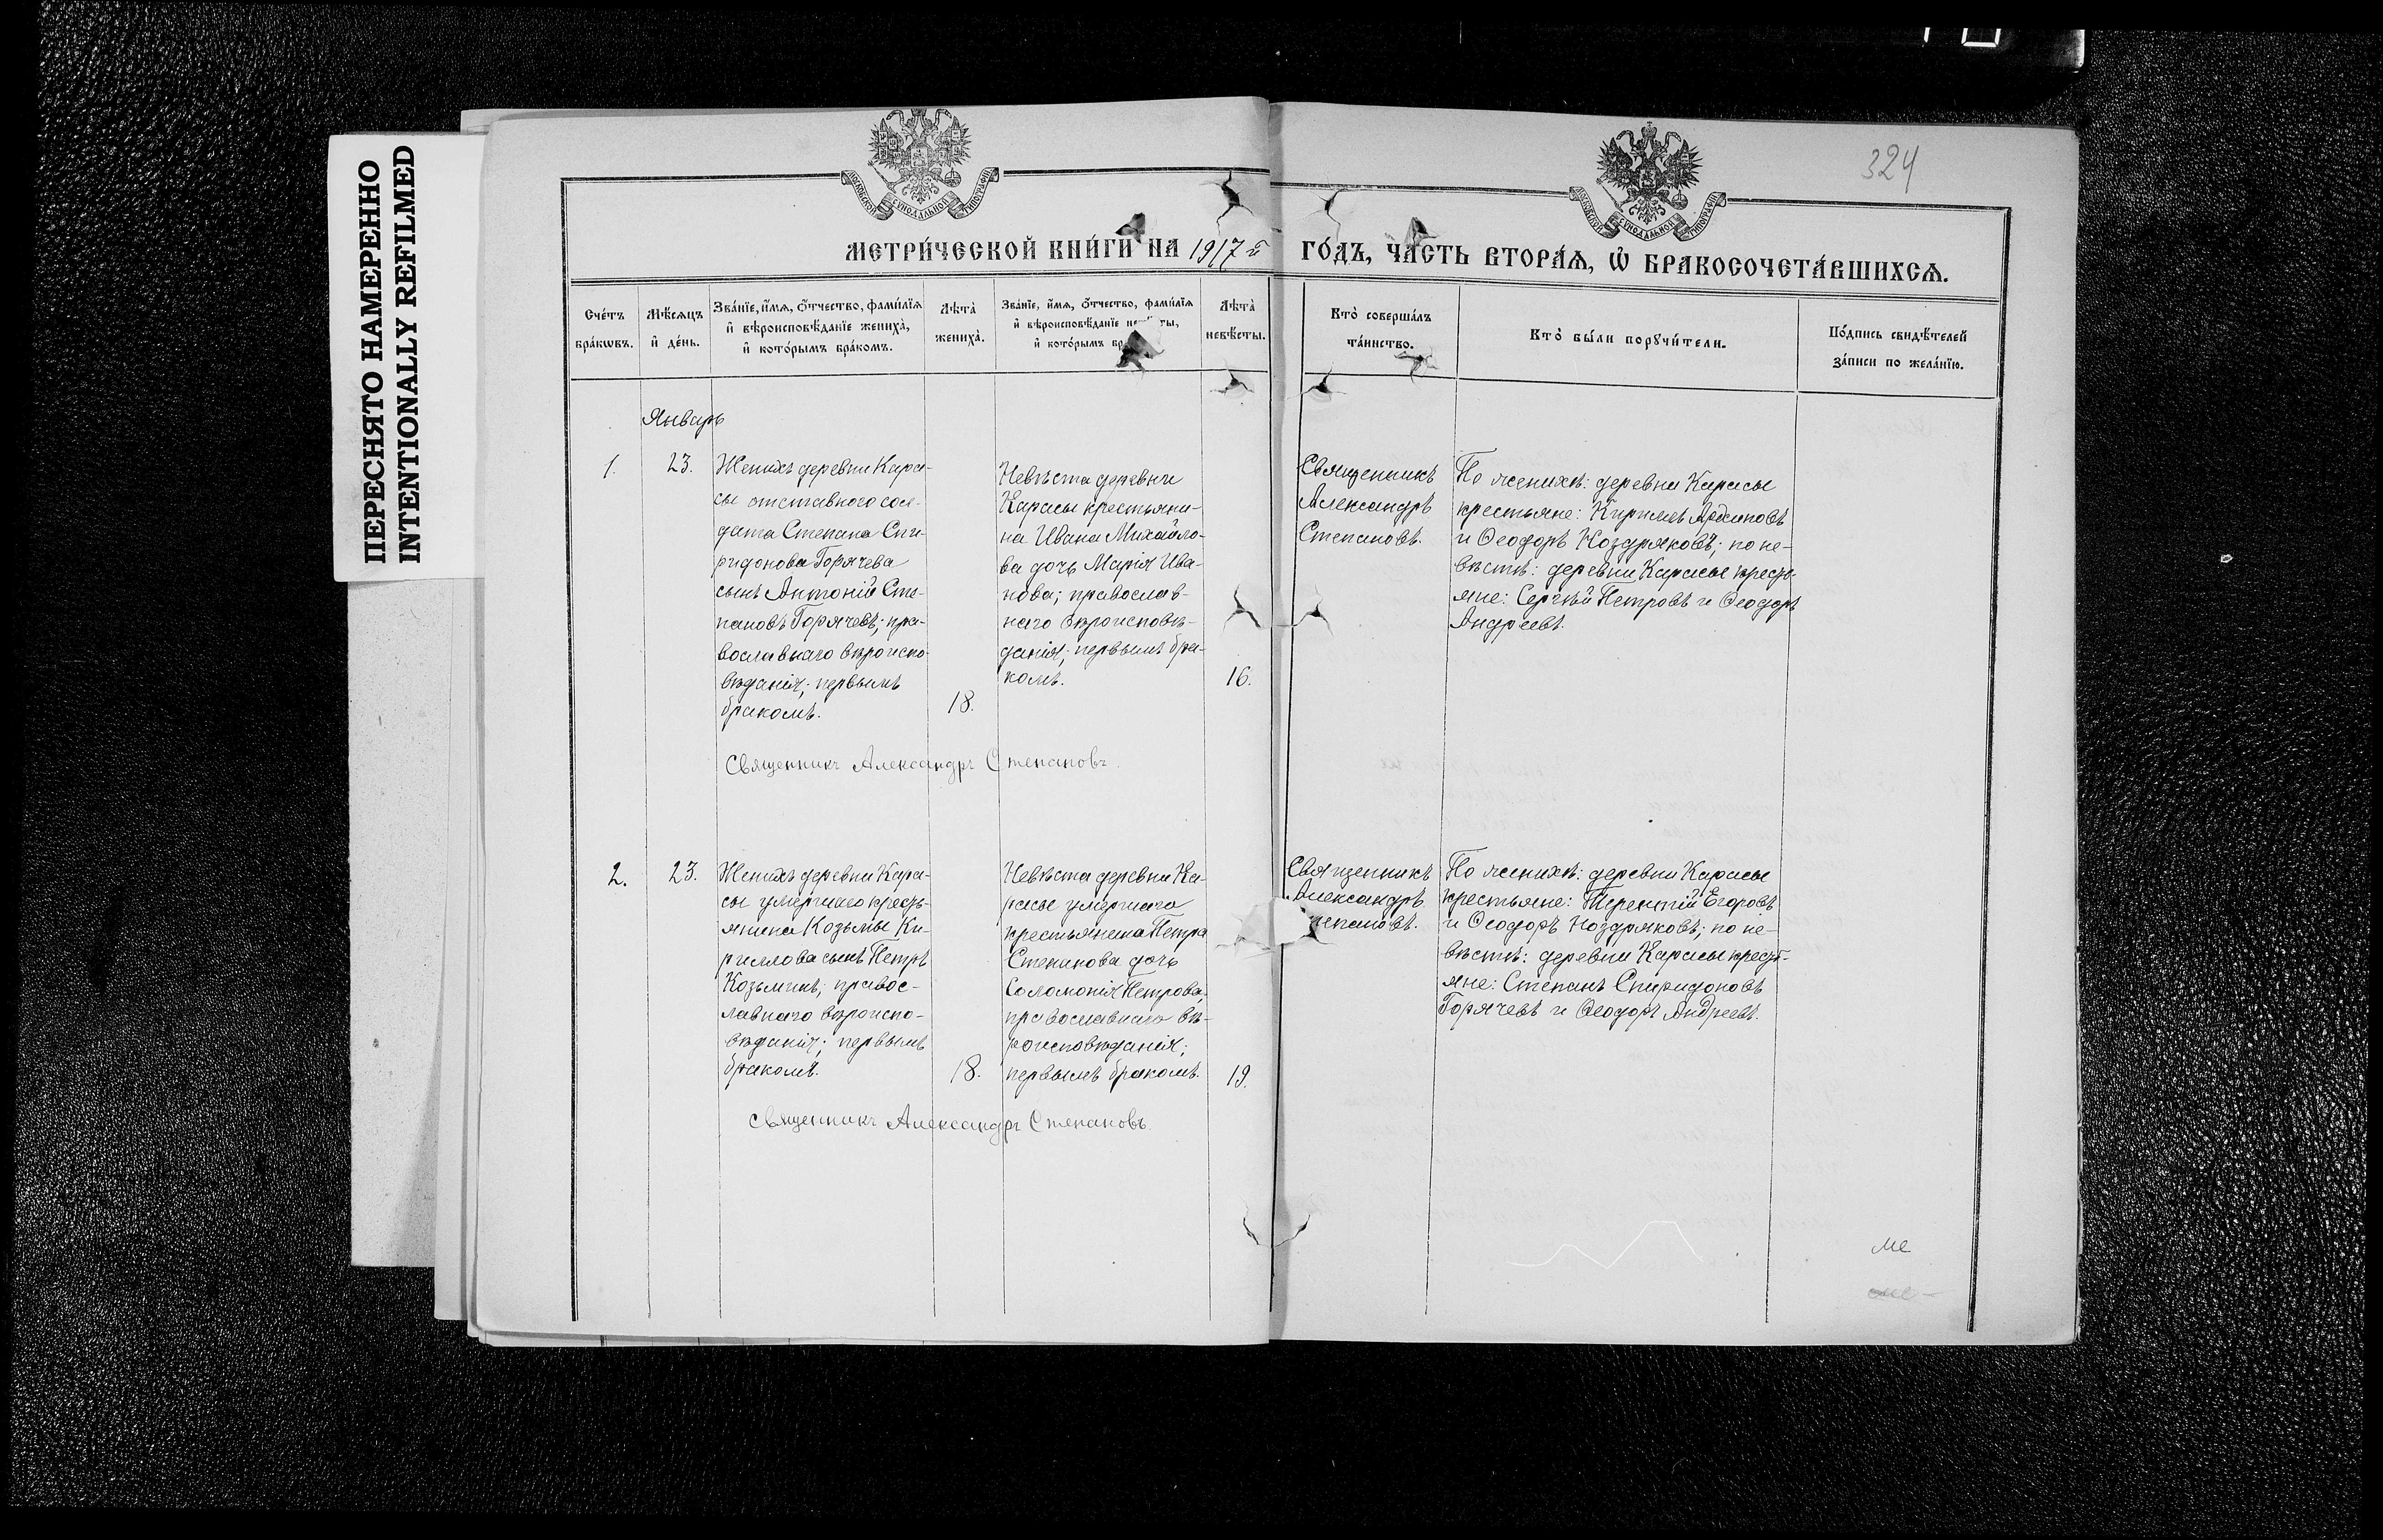 ПЕРЕСНЯТО НАМЕРЕННО
INTENTIONALLY REFILMED
324
МОСКОВСКОЙ СѴНОДАЛЬНОЙ ТИПОГРАФІИ
МОСКОВСКОЙ СѴНОДАЛЬНОЙ ТИПОГРАФІИ
МЕТРИ́ЧЕСКОЙ КНИ́ГИ НА 1917й ГО́ДЪ, ЧАСТЬ ВТОРА́Ѧ, Ѡ БРАКОСОЧЕТА́ВШИХСѦ.
Сче́тъ
бра́кѡвъ.
Мѣ́сѧцъ
и҆ де́нь.
Зва́нїе, и҆́мѧ, ѻ҆́тчество, фами́лїѧ
и҆ вѣроисповѣ́данїе жениха̀,
и҆ кото́рымъ бра́комъ.
Лѣта̀
жениха̀.
Зва́нїе, и҆́мѧ, ѻ҆́тчество, фами́лїѧ
и҆ вѣроисповѣ́данїе
и҆ кото́рымъ
Лѣта̀
невѣ́сты.
Кто̀ соверша́лъ
та́инство.
Кто̀ бы́ли порꙋчи́тели.
По́дпись свидѣ́телей
за́писи по жела́нїю.
Январь
1.
23.
Женихъ деревни Кара-
сы отставного сол-
дата Степана Спи-
ридонова Горячева
сынъ Антоній Сте-
пановъ Горячевъ; пра-
вославнаго вѣроиспо-
вѣданія; первымъ
бракомъ.
18.
Невѣста деревни
Карасы крестьяни-
на Ивана Михайло-
ва дочь Марія Ива-
нова; православ-
наго вѣроисповѣ-
данія; первымъ бра-
комъ.
16.
Священникъ
Александръ
Степановъ.
По женихѣ: деревни Карасы
крестьяне: Кириллъ Архиповъ
и Ѳеодоръ Ноздряковъ; по не-
вѣстѣ: деревни Карасы кресть-
яне: Сергѣй Петровъ и Ѳеодоръ
Андреевъ.
Священникъ Александръ Степановъ.
2.
23.
Женихъ деревни Кара-
сы умершаго кресть-
янина Козьмы Ки-
риллова сынъ Петръ
Козьминъ; правос-
лавнаго вѣроиспо-
вѣданія; первымъ
бракомъ.
18.
Невѣста деревни Ка-
расы умершаго
крестьянина Петра
Степанова дочь
Соломонія Петрова;
православнаго вѣ-
роисповѣданія;
первымъ бракомъ.
19.
Священникъ
Александръ
тепановъ.
По женихѣ: деревни Карасы
крестьяне: Терентій Егоровъ
и Ѳеодоръ Ноздряковъ; по не-
вѣстѣ: деревни Карасы кресть-
яне: Степанъ Спиридоновъ
Горячевъ и Ѳеодоръ Андреевъ.
Священникъ Александръ Степановъ.
ме